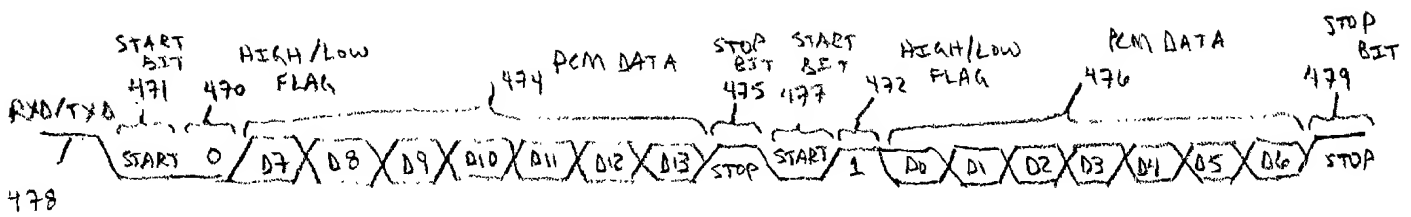 START BIT 471
470
HIGH/LOW FLAG
474
PCM DATA
STOP BIT 475
START BIT 477
472
HIGH/LOW FLAG
PCM DATA
476
STOP BIT
479
RXD/TXD
START 0 D7 D8 D9 D10 D11 D12 D13 STOP START 1 D0 D1 D2 D3 D4 D5 D6 STOP
478